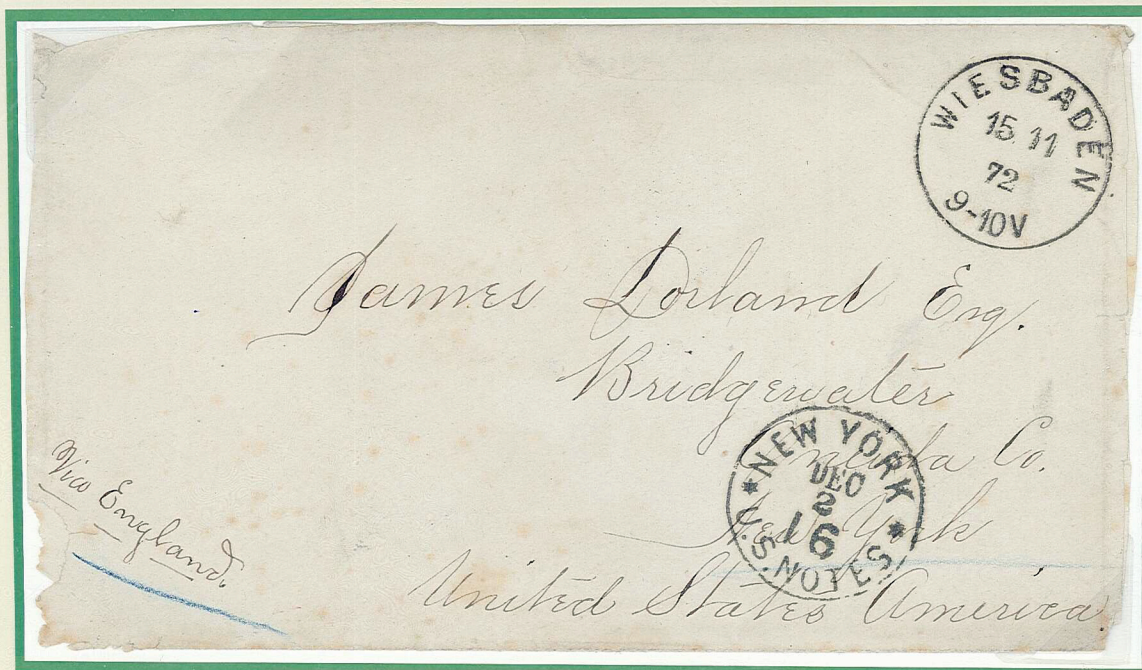 WIESBADEN
15 11
72
9-10V
James Dorland Esq.
Bridgewater
Oneida Co.
New York
United States America
Via England.
NEW YORK
DEC
2
16
U.S. NOTES